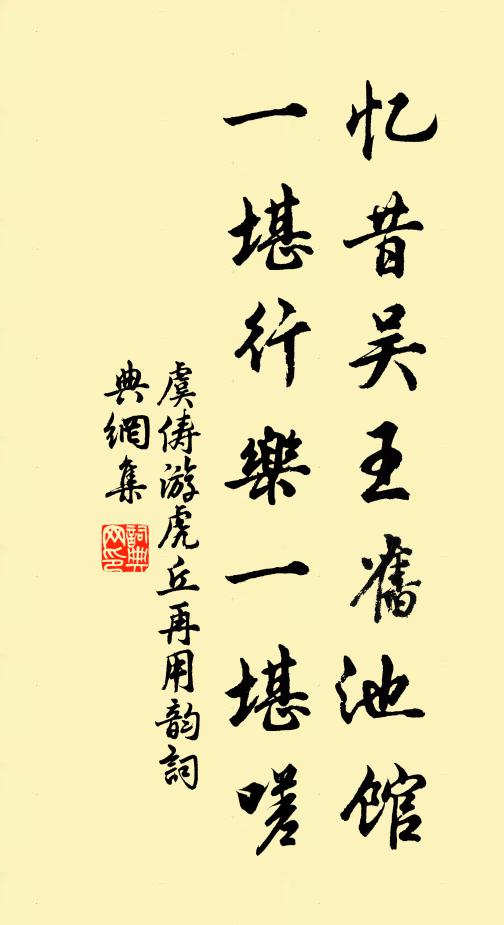 忆昔吴王舊池館
一堪行樂一堪嗟
虞俦游虎丘再用韵詞
典網集
詞典
网印